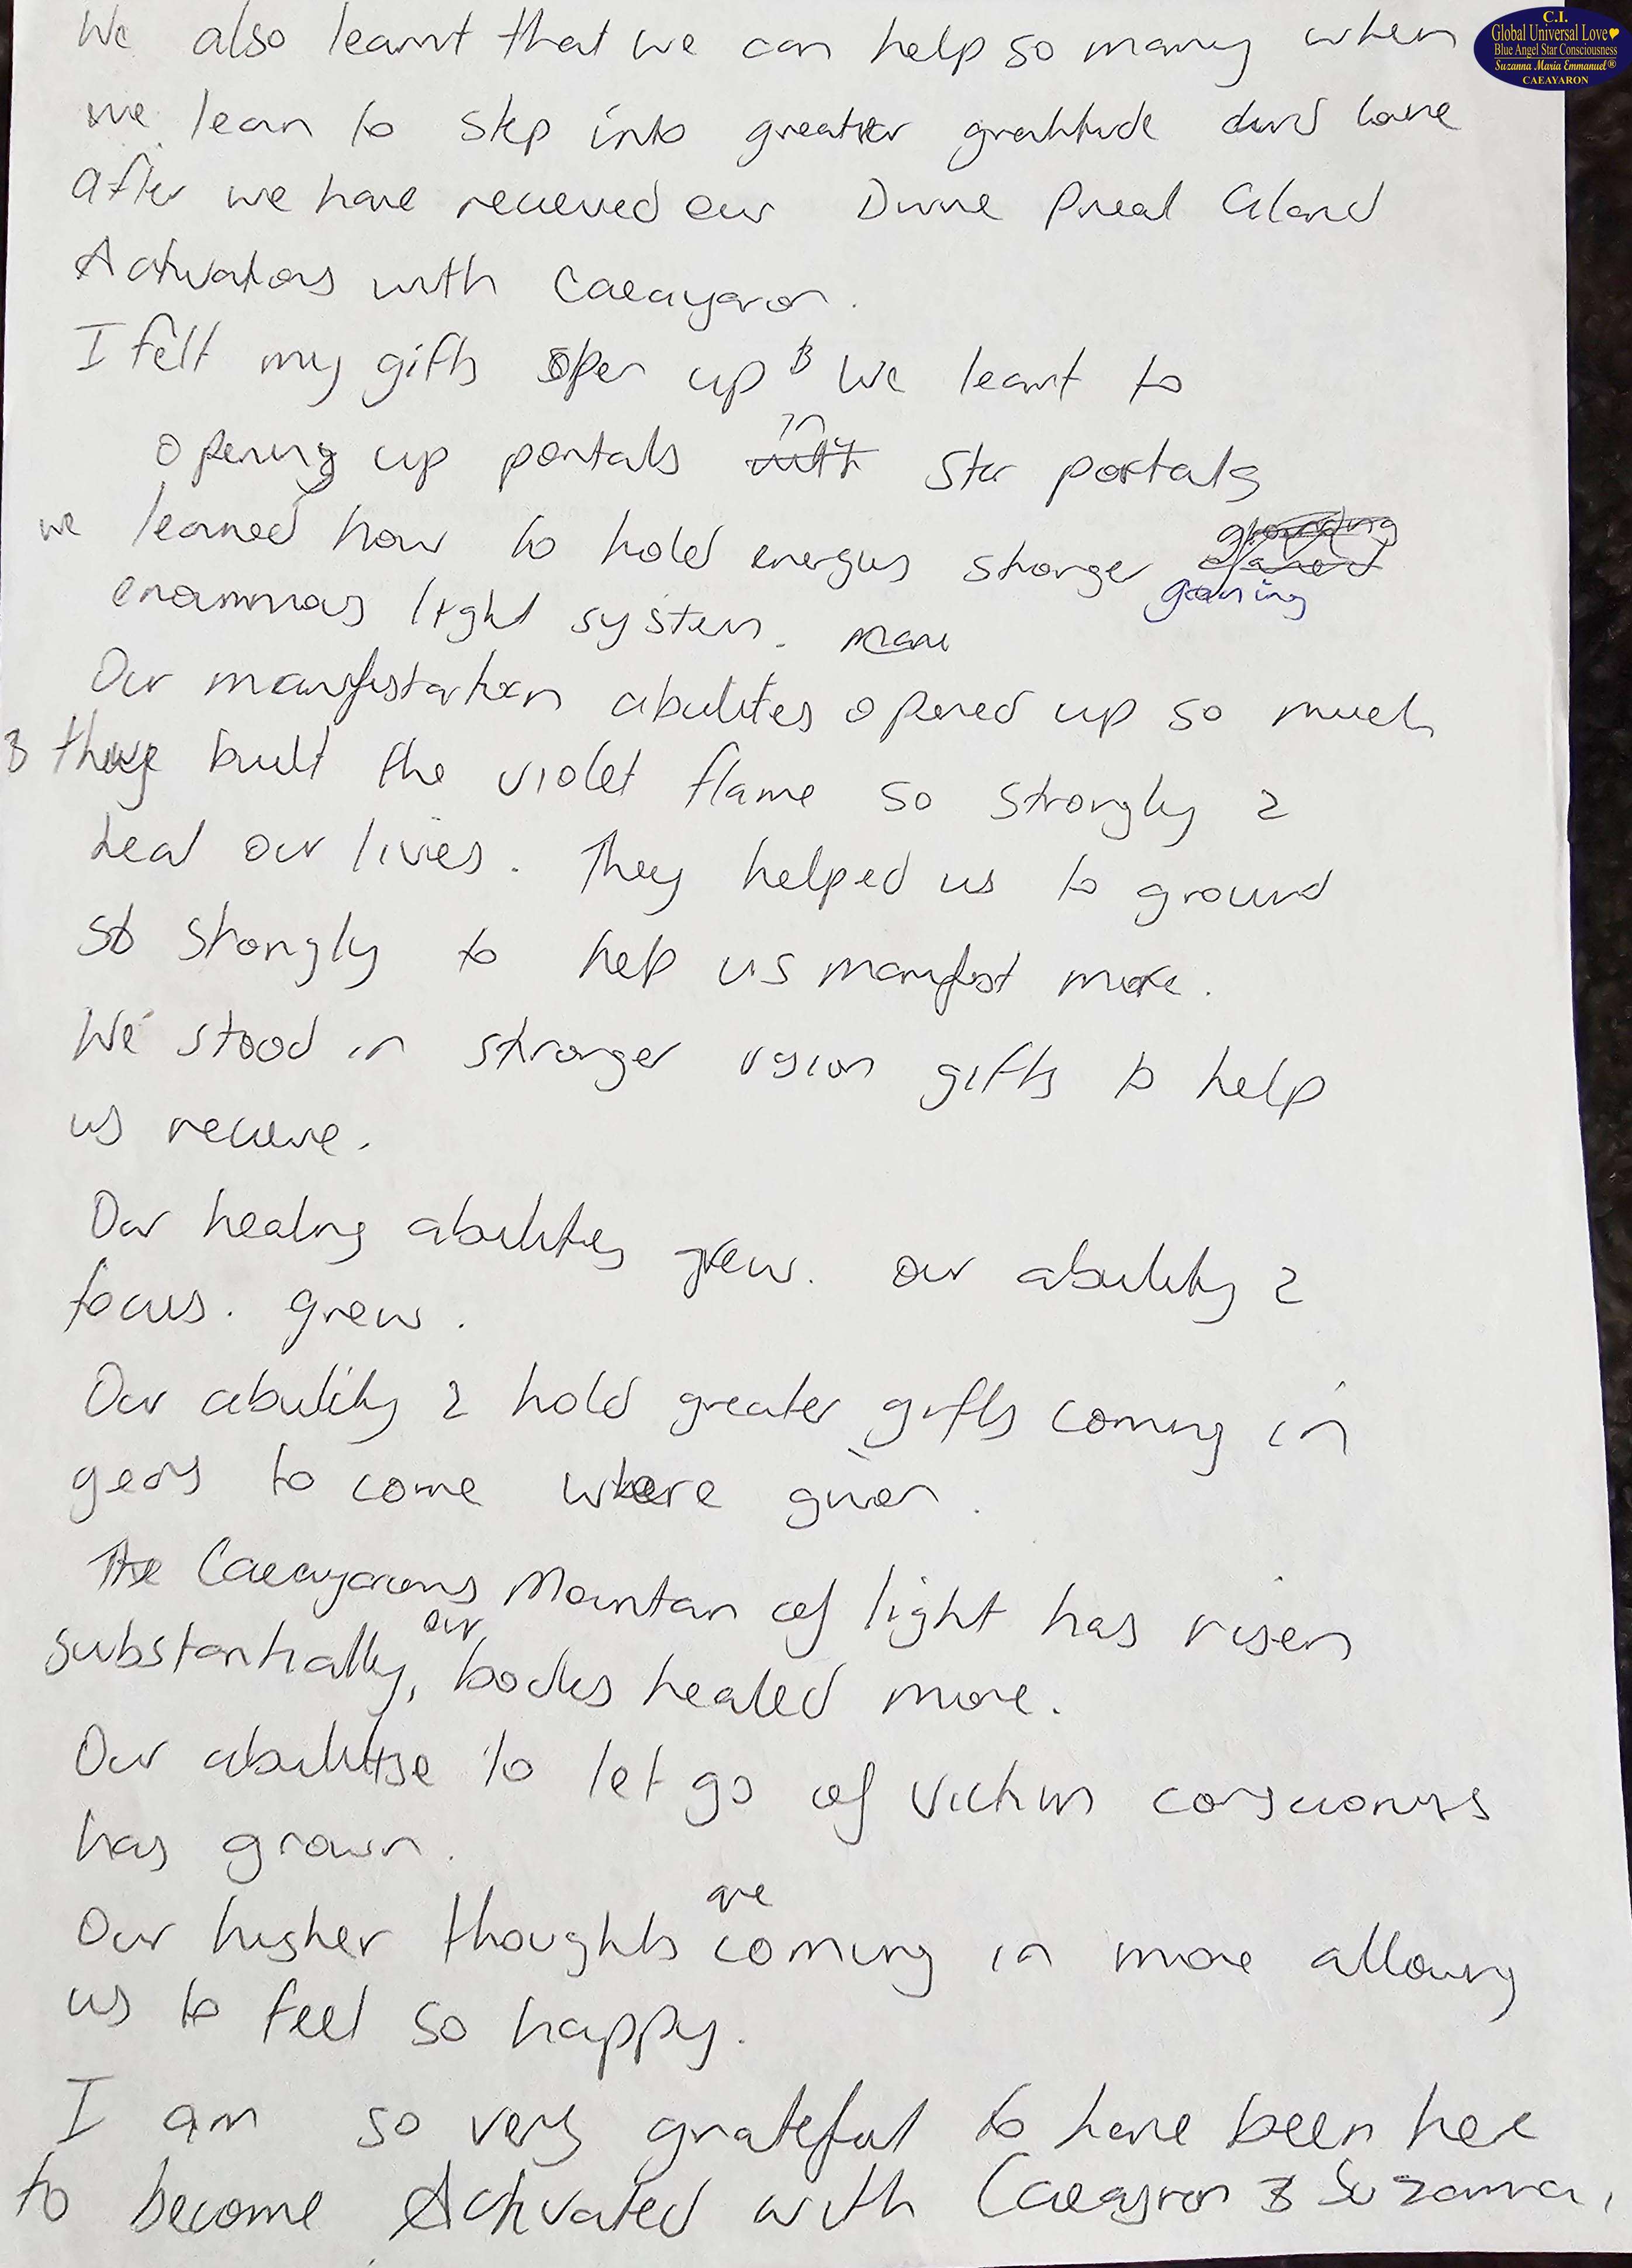 C.I.
Global Universal Love
Blue Angel Star Consciousness
Suzanna Maria Emmanuel®
CAEAYARON
We also learnt that we can help so many when
we learn to step into greater gratitude and love
after we have recieved our Divine Pineal Gland
Activations with Caeayaron.
I felt my gifts open up & We learnt to
opening up portals in star portals
we learned how to hold energies stronger
gaining
enormous light system.
Our manifestation abilities opened up so much
& they built the violet flame so strongly 2
heal our lives. They helped us to ground
so strongly to help us manifest more.
We stood in stronger vision gifts to help
us recieve.
Our healing abilities grew. our ability 2
focus. grew.
Our ability 2 hold greater gifts coming in
years to come where given.
The Caeayarons Mountain of light has risen
substantially, our bodies healed more.
Our abilities to let go of victim consciousness
has grown.
Our higher thoughts are coming in more allowing
us to feel so happy.
I am so very grateful to have been here
to become Activated with Caeayron & Suzanna,